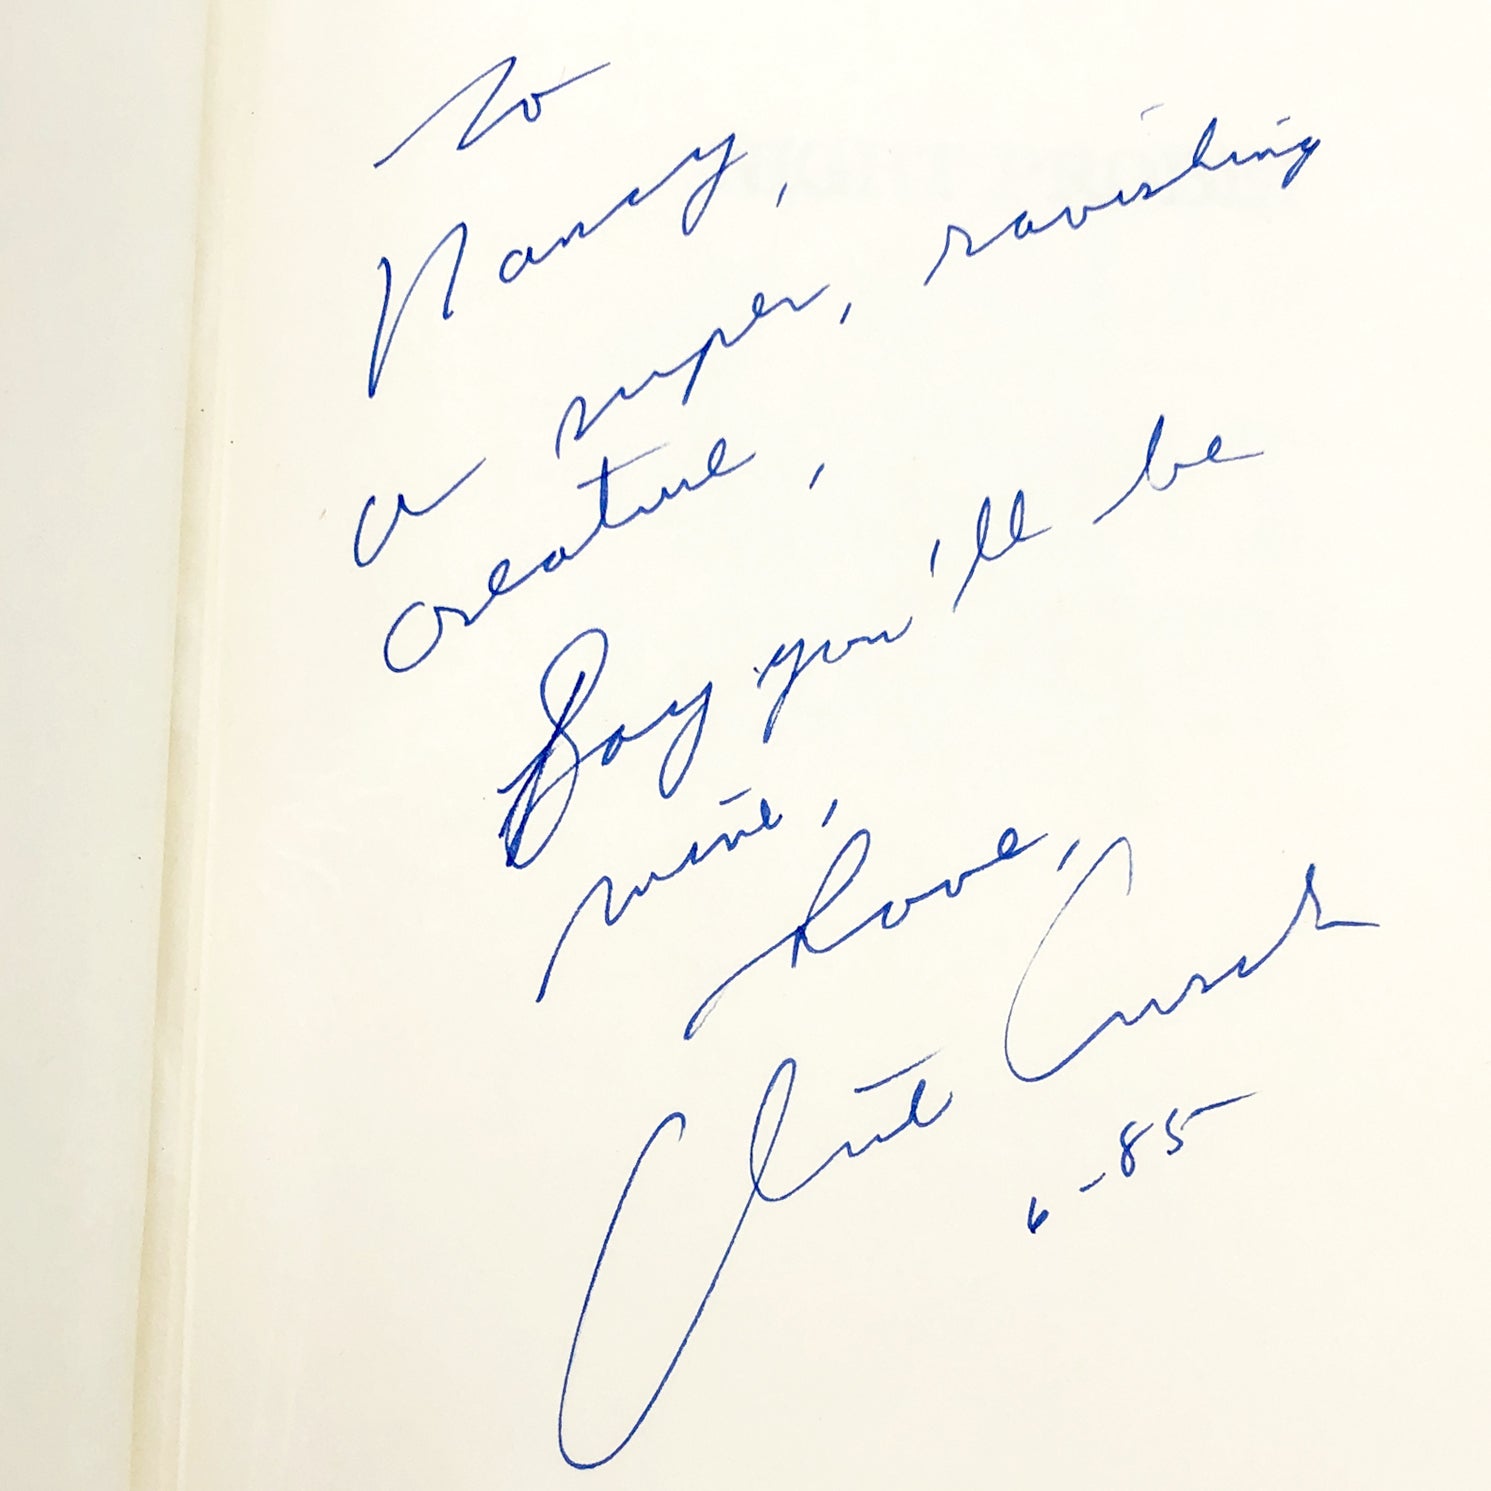 To
Nancy,
a super, ravishing
creature,
Say you'll be
mine,
Love,
Clint
6-85